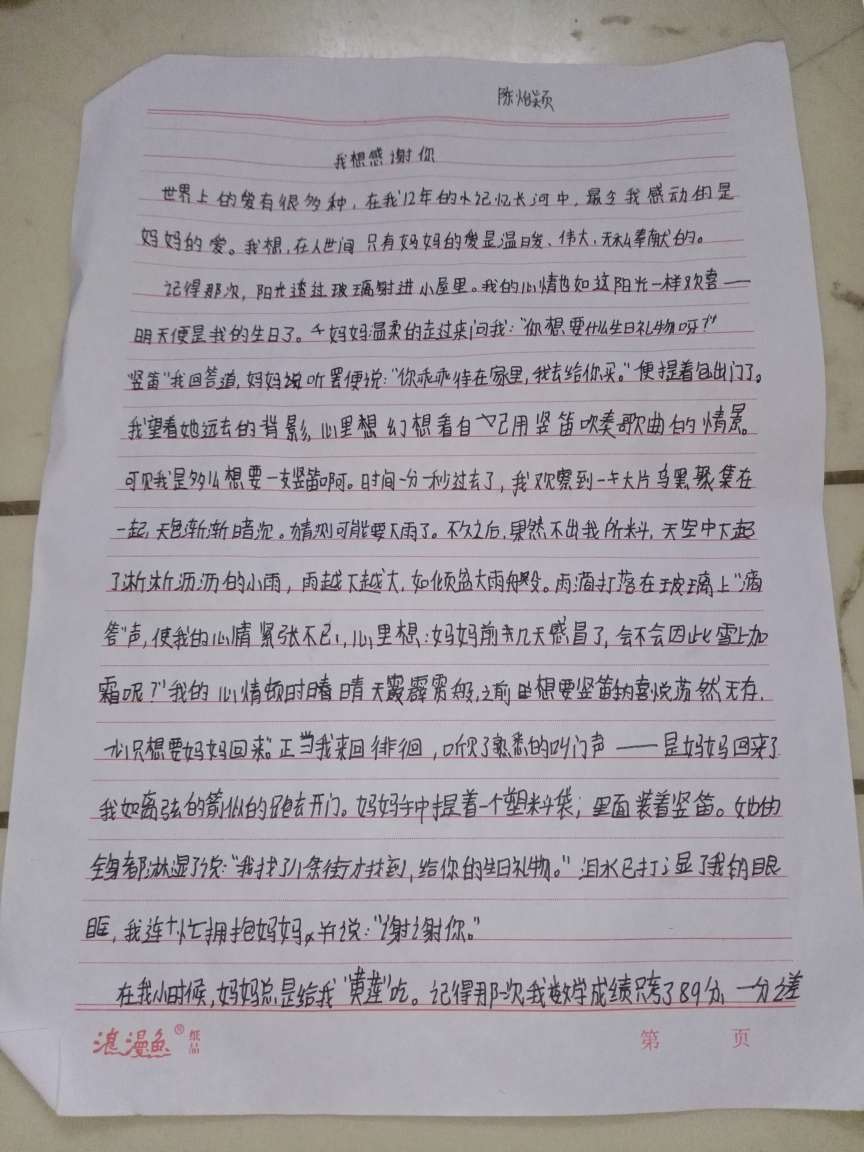 陈怡颖
我想感谢你
世界上的爱有很多种，在我12年的记忆长河中，最令我感动的是
妈妈的爱。我想，在人世间只有妈妈的爱是温暖、伟大、无私奉献的。
记得那次，阳光透过玻璃射进小屋里。我的心情也如这阳光一样欢喜——
明天便是我的生日了。妈妈温柔的走过来问我："你想要什么生日礼物呀？"
竖笛"我回答道，妈妈听罢便说："你乖乖待在家里，我去给你买。"便提着包出门了。
我望着她远去的背影，心里想幻想着自己用竖笛吹奏歌曲的情景。
可见我是多么想要一支竖笛啊。时间一分一秒过去了，我观察到一大片乌黑聚集在
一起，天色渐渐暗沉。猜测可能要下雨了。不久之后，果然不出我所料，天空中下起
了淅淅沥沥的小雨，雨越下越大，如倾盆大雨般。雨滴打落在玻璃上"滴
答"声，使我的心情紧张不已，心里想：妈妈前几天感冒了，会不会因此雪上加
霜呢？"我的心情顿时晴天霹雳般，之前想要竖笛的喜悦荡然无存，
心只想要妈妈回来。正当我来回徘徊，听见了熟悉的叫门声——是妈妈回来了
我如离弦的箭似的跑去开门。妈妈手中提着一个塑料袋；里面装着竖笛。她的
全身都淋湿了说："我找了八条街才找到，给你的生日礼物。"泪水已打湿了我的眼
眶，我连忙拥抱妈妈，并说："谢谢你。"
在我小时候，妈妈总是给我"黄莲"吃。记得那一次我数学成绩只考了89分，一分之差
浪漫鱼®纸品
第 页